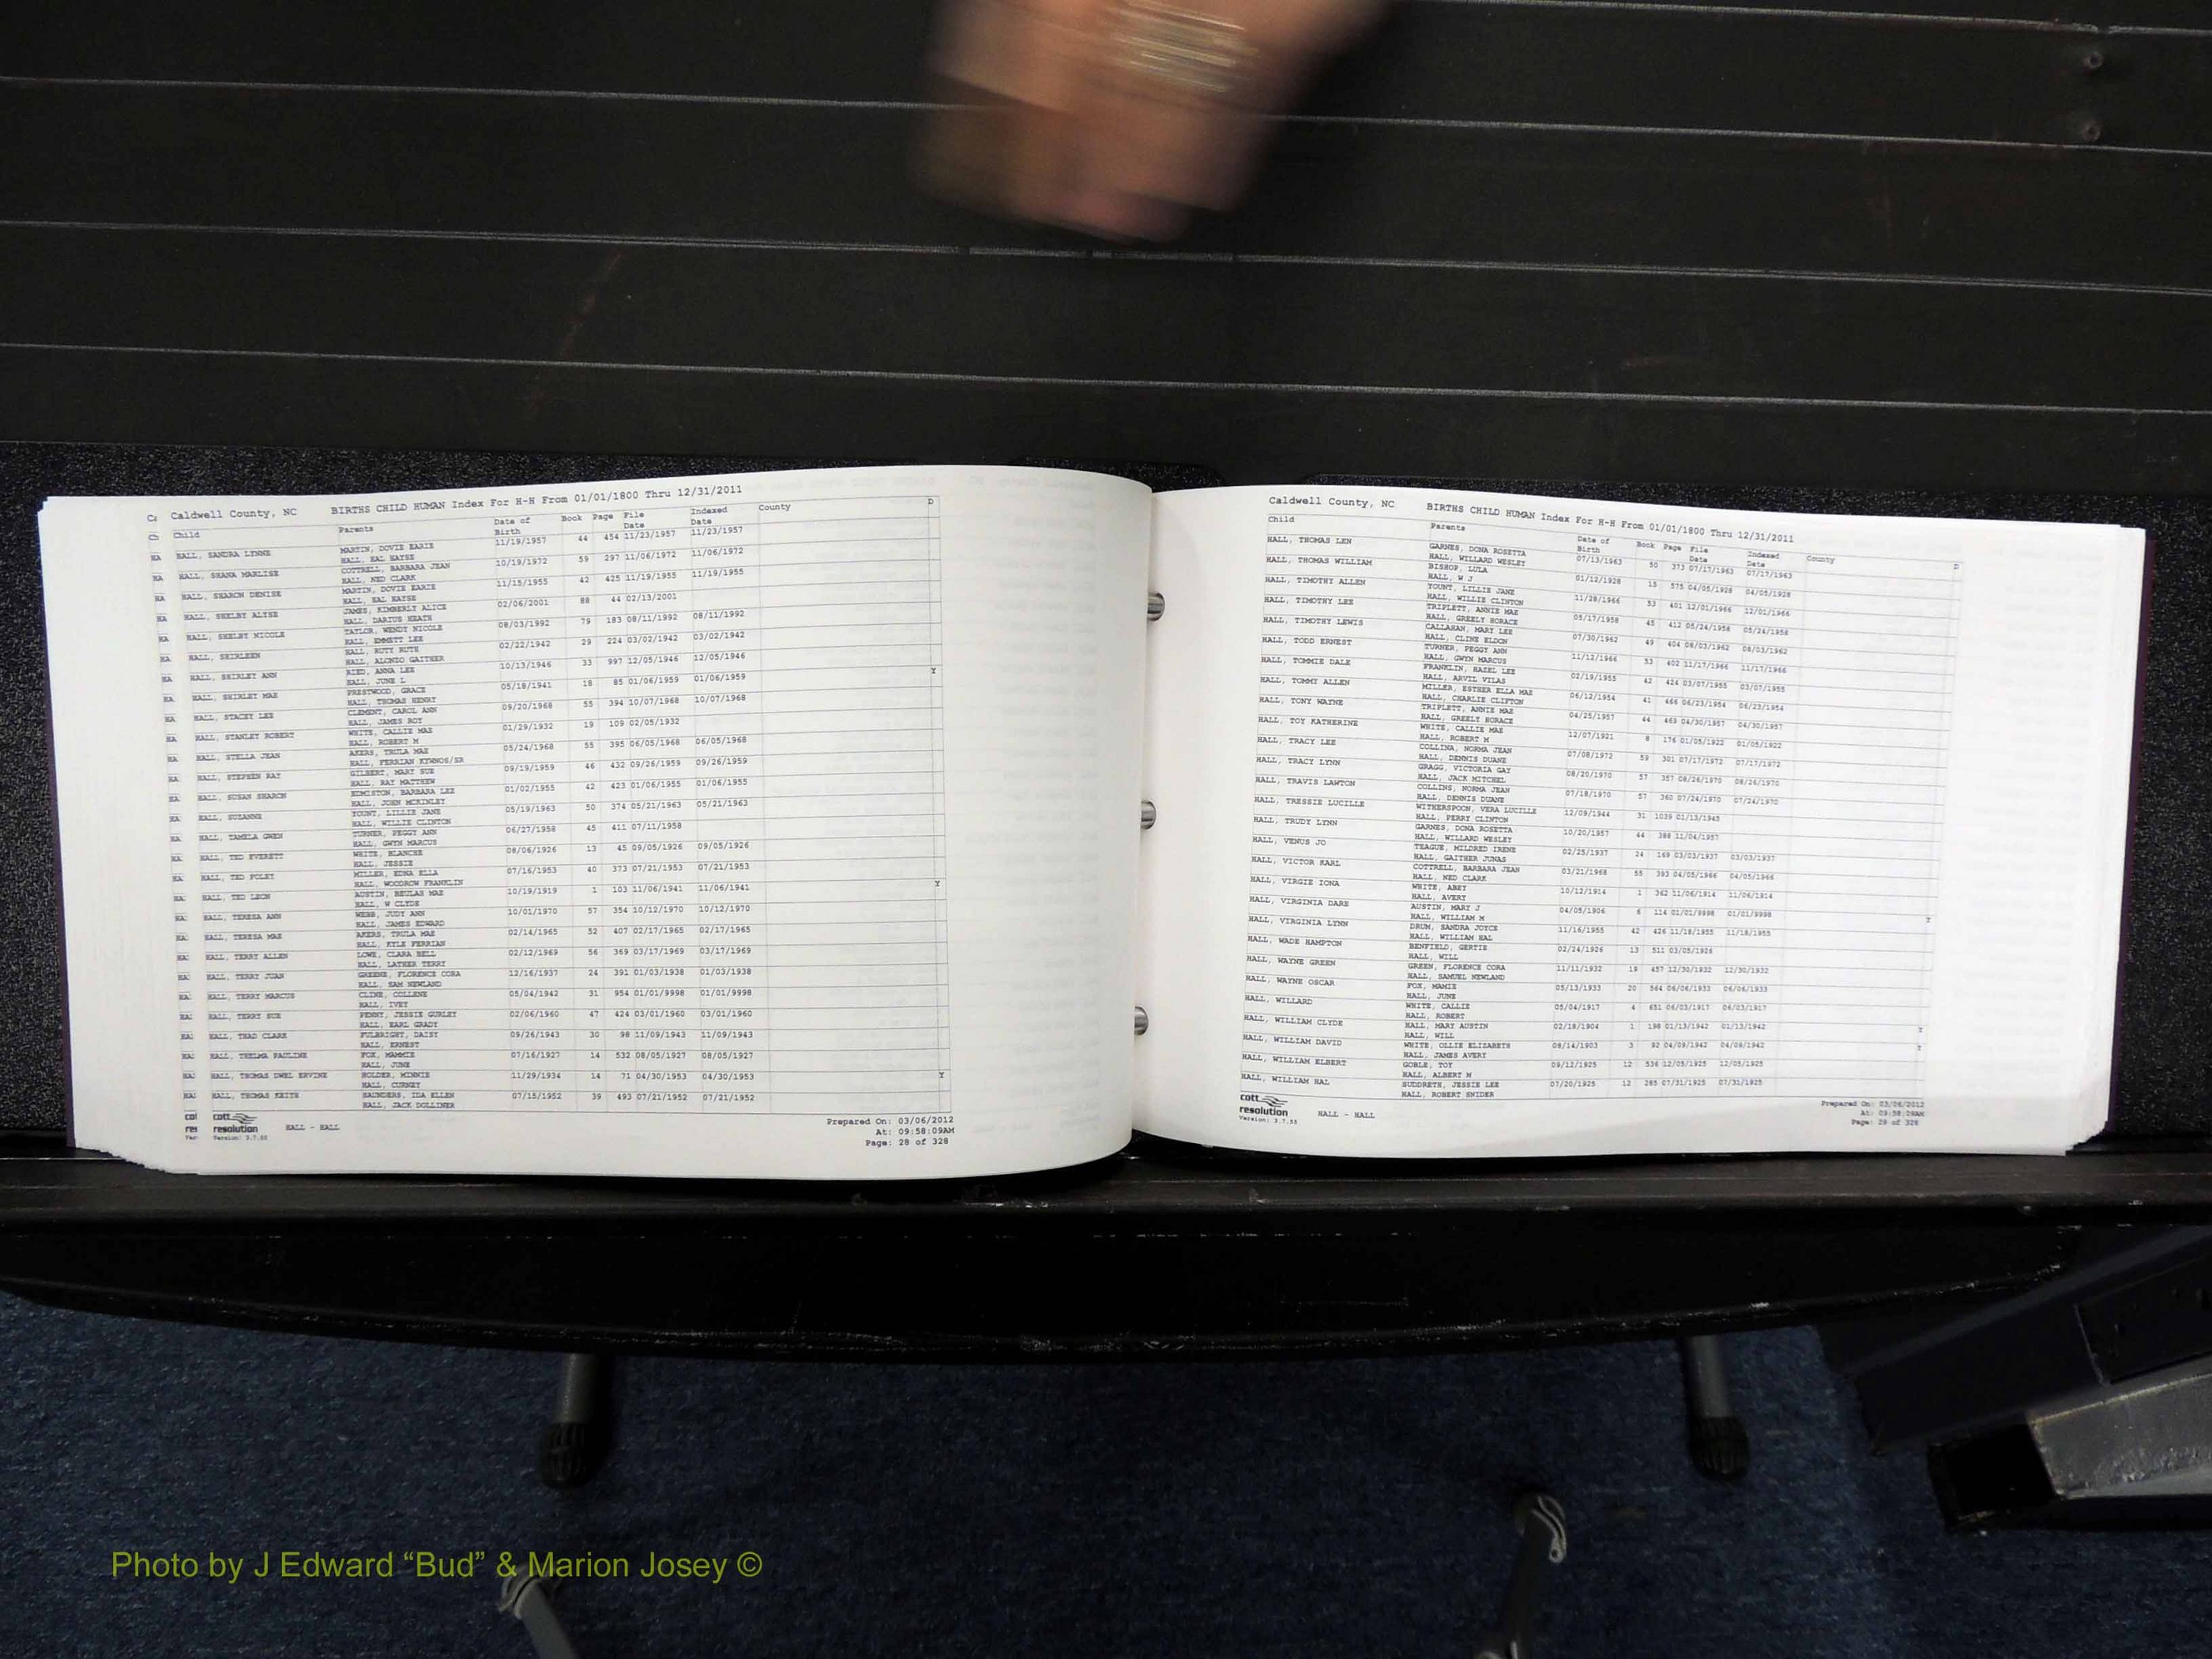 Caldwell County, NC BIRTHS CHILD HUMAN Index For H-H From 01/01/1800 Thru 12/31/2011
Child Parents Date of Birth Book Page File Date Indexed Date County D
HALL, SANDRA LYNNE MARTIN, DOVIE EARIE 11/19/1957 44 454 11/23/1957 11/23/1957
HALL, HAL HAYSE
HALL, SHANA MARLISE COTTRELL, BARBARA JEAN 10/19/1972 59 297 11/06/1972 11/06/1972
HALL, NED CLARK
HALL, SHARON DENISE MARTIN, DOVIE EARIE 11/15/1955 42 425 11/19/1955 11/19/1955
HALL, HAL HAYSE
HALL, SHELBY ALYSE JAMES, KIMBERLY ALICE 02/06/2001 88 44 02/13/2001
HALL, DARIUS HEATH
HALL, SHELBY NICOLE TAYLOR, WENDY NICOLE 08/03/1992 79 183 08/11/1992 08/11/1992
HALL, EMMETT LEE
HALL, SHIRLEEN HALL, RUTY RUTH 02/22/1942 29 224 03/02/1942 03/02/1942
HALL, ALONZO GAITHER
HALL, SHIRLEY ANN RIED, ANNA LEE 10/13/1946 33 997 12/05/1946 12/05/1946
HALL, JUNE L
HALL, SHIRLEY MAE PRESTWOOD, GRACE 05/18/1941 18 85 01/06/1959 01/06/1959 Y
HALL, THOMAS HENRY
HALL, STACEY LEE CLEMENT, CAROL ANN 09/20/1968 55 394 10/07/1968 10/07/1968
HALL, JAMES ROY
HALL, STANLEY ROBERT WHITE, CALLIE MAE 01/29/1932 19 109 02/05/1932
HALL, ROBERT M
HALL, STELLA JEAN AKERS, TRULA MAE 05/24/1968 55 395 06/05/1968 06/05/1968
HALL, FERRIAN KYWNOS/SR
HALL, STEPHEN RAY GILBERT, MARY SUE 09/19/1959 46 432 09/26/1959 09/26/1959
HALL, RAY MATTHEW
HALL, SUSAN SHARON EDMISTON, BARBARA LEE 01/02/1955 42 423 01/06/1955 01/06/1955
HALL, JOHN MCKINLEY
HALL, SUZANNE YOUNT, LILLIE JANE 05/19/1963 50 374 05/21/1963 05/21/1963
HALL, WILLIE CLINTON
HALL, TAMELA GWEN TURNER, PEGGY ANN 06/27/1958 45 411 07/11/1958
HALL, GWYN MARCUS
HALL, TED EVERETT WHITE, BLANCHE 08/06/1926 13 45 09/05/1926 09/05/1926
HALL, JESSIE
HALL, TED FOLEY MILLER, EDNA ELLA 07/16/1953 40 373 07/21/1953 07/21/1953
HALL, WOODROW FRANKLIN
HALL, TED LEON AUSTIN, BEULAH MAE 10/19/1919 1 103 11/06/1941 11/06/1941 Y
HALL, W CLYDE
HALL, TERESA ANN WEBB, JUDY ANN 10/01/1970 57 354 10/12/1970 10/12/1970
HALL, JAMES EDWARD
HALL, TERESA MAE AKERS, TRULA MAE 02/14/1965 52 407 02/17/1965 02/17/1965
HALL, KYLE FERRIAN
HALL, TERRY ALLEN LOWE, CLARA BELL 02/12/1969 56 369 03/17/1969 03/17/1969
HALL, LATHER TERRY
HALL, TERRY JUAN GREENE, FLORENCE CORA 12/16/1937 24 391 01/03/1938 01/03/1938
HALL, SAM NEWLAND
HALL, TERRY MARCUS CLINE, COLLENE 05/04/1942 31 954 01/01/9998 01/01/9998
HALL, IVEY
HALL, TERRY SUE PENNY, JESSIE GURLEY 02/06/1960 47 424 03/01/1960 03/01/1960
HALL, EARL GRADY
HALL, THAD CLARK FULBRIGHT, DAISY 09/26/1943 30 98 11/09/1943 11/09/1943
HALL, ERNEST
HALL, THELMA PAULINE FOX, MAMMIE 07/16/1927 14 532 08/05/1927 08/05/1927
HALL, JUNE
HALL, THOMAS DWEL ERVINE HOLDER, MINNIE 11/29/1934 14 71 04/30/1953 04/30/1953 Y
HALL, CURNEY
HALL, THOMAS KEITH SAUNDERS, IDA ELLEN 07/15/1952 39 493 07/21/1952 07/21/1952
HALL, JACK DOLLINER
cott resolution
Version: 3.7.55
HALL - HALL
Prepared On: 03/06/2012
At: 09:58:09AM
Page: 28 of 328
Caldwell County, NC BIRTHS CHILD HUMAN Index For H-H From 01/01/1800 Thru 12/31/2011
Child Parents Date of Birth Book Page File Date Indexed Date County D
HALL, THOMAS LEN GARNES, DONA ROSETTA 07/13/1963 50 373 07/17/1963 07/17/1963
HALL, WILLARD WESLEY
HALL, THOMAS WILLIAM BISHOP, LULA 01/12/1928 15 575 04/05/1928 04/05/1928
HALL, W J
HALL, TIMOTHY ALLEN YOUNT, LILLIE JANE 11/28/1966 53 401 12/01/1966 12/01/1966
HALL, WILLIE CLINTON
HALL, TIMOTHY LEE TRIPLETT, ANNIE MAE 05/17/1958 45 412 05/24/1958 05/24/1958
HALL, GREELY HORACE
HALL, TIMOTHY LEWIS CALLAHAN, MARY LEE 07/30/1962 49 404 08/03/1962 08/03/1962
HALL, CLINE ELDON
HALL, TODD ERNEST TURNER, PEGGY ANN 11/12/1966 53 402 11/17/1966 11/17/1966
HALL, GWYN MARCUS
HALL, TOMMIE DALE FRANKLIN, HAZEL LEE 02/19/1955 42 424 03/07/1955 03/07/1955
HALL, ARVIL VILAS
HALL, TOMMY ALLEN MILLER, ESTHER ELLA MAE 06/12/1954 41 466 06/23/1954 06/23/1954
HALL, CHARLIE CLIFTON
HALL, TONY WAYNE TRIPLETT, ANNIE MAE 04/25/1957 44 469 04/30/1957 04/30/1957
HALL, GREELY HORACE
HALL, TOY KATHERINE WHITE, CALLIE MAE 12/07/1921 8 176 01/05/1922 01/05/1922
HALL, ROBERT M
HALL, TRACY LEE COLLINA, NORMA JEAN 07/08/1972 59 301 07/17/1972 07/17/1972
HALL, DENNIS DUANE
HALL, TRACY LYNN GRAGG, VICTORIA GAY 08/20/1970 57 357 08/26/1970 08/26/1970
HALL, JACK MITCHEL
HALL, TRAVIS LAWTON COLLINS, NORMA JEAN 07/18/1970 57 360 07/24/1970 07/24/1970
HALL, DENNIS DUANE
HALL, TRESSIE LUCILLE WITHERSPOON, VERA LUCILLE 12/09/1944 31 1039 01/13/1945
HALL, PERRY CLINTON
HALL, TRUDY LYNN GARNES, DONA ROSETTA 10/20/1957 44 388 11/04/1957
HALL, WILLARD WESLEY
HALL, VENUS JO TEAGUE, MILDRED IRENE 02/25/1937 24 169 03/03/1937 03/03/1937
HALL, GAITHER JUNAS
HALL, VICTOR KARL COTTRELL, BARBARA JEAN 03/21/1968 55 393 04/05/1966 04/05/1966
HALL, NED CLARK
HALL, VIRGIE IONA WHITE, ABEY 10/12/1914 1 362 11/06/1914 11/06/1914
HALL, AVERY
HALL, VIRGINIA DARE AUSTIN, MARY J 04/05/1906 6 114 01/01/9998 01/01/9998 Y
HALL, WILLIAM M
HALL, VIRGINIA LYNN DRUM, SANDRA JOYCE 11/16/1955 42 426 11/18/1955 11/18/1955
HALL, WILLIAM HAL
HALL, WADE HAMPTON BENFIELD, GERTIE 02/24/1926 13 511 03/05/1926
HALL, WILL
HALL, WAYNE GREEN GREEN, FLORENCE CORA 11/11/1932 19 457 12/30/1932 12/30/1932
HALL, SAMUEL NEWLAND
HALL, WAYNE OSCAR FOX, MAMIE 05/13/1933 20 564 06/06/1933 06/06/1933
HALL, JUNE
HALL, WILLARD WHITE, CALLIE 05/04/1917 4 651 06/03/1917 06/03/1917
HALL, ROBERT
HALL, WILLIAM CLYDE HALL, MARY AUSTIN 02/18/1904 1 198 01/13/1942 01/13/1942 Y
HALL, WILL
HALL, WILLIAM DAVID WHITE, OLLIE ELIZABETH 09/14/1903 3 92 04/09/1942 04/09/1942 Y
HALL, JAMES AVERY
HALL, WILLIAM ELBERT GOBLE, TOY 09/12/1925 12 536 12/05/1925 12/05/1925
HALL, ALBERT M
HALL, WILLIAM HAL SUDDRETH, JESSIE LEE 07/20/1925 12 285 07/31/1925 07/31/1925
HALL, ROBERT SNIDER
cott resolution
Version: 3.7.55
HALL - HALL
Prepared On: 03/06/2012
At: 09:58:09AM
Page: 29 of 328
Photo by J Edward “Bud” & Marion Josey ©